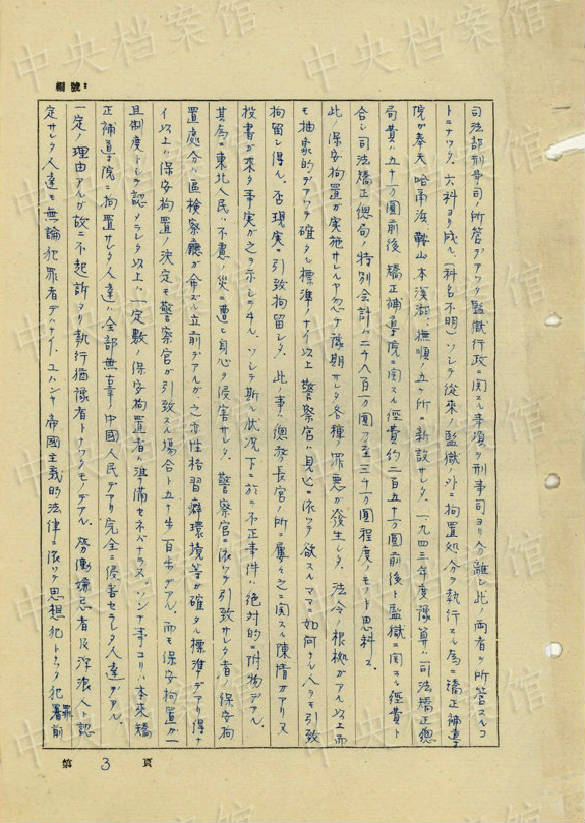 編號:
司法部刑事司ノ所管デアツタ監獄行政ニ関スル事項ヲ刑事司ヨリ分離シ此ノ両者ヲ所管スルコ
トニナツタ。六科ヨリ成ル(科名不明)ソシテ従来ノ監獄ノ外ニ拘置処分ヲ執行スル為ニ矯正補導
院ガ奉天、哈尓浜、鞍山、本溪湖、撫順ノ五ケ所ニ新設サレタ。一九四三年度豫算ハ司法矯正總
局費ハ五十万圓前後、矯正補導院ニ関スル経費約二百五十万圓前後ト監獄ニ関スル経費ト
合シ司法矯正總局ノ特別会計ハ二千八百万圓乃至三千万圓程度ノモノト思料ス。
此ノ保安拘置ガ実施サレルヤ忽チ豫期サレタ各種ノ罪悪ガ發生シタ。法令ノ根拠ガアル以上而
モ抽象的デアツテ確タル標準ノナイ以上警察官ハ見込ニ依ツテ欲スルママニ如何ナル人ヲモ引致
拘留シ得ル。否現実ニ引致拘留シタ。此ノ事ハ總務長官ノ所ニ屢々之ニ関スル陳情ガアリ又
投書ガ来タ事実ガ之ヲ示シテヰル。ソシテ斯ル状況下ニ於テ不正事件ハ絶対的ニ附物デアル。
其為ニ東北人民ハ不慮ノ災ニ遭ヒ身心ヲ侵害サレタ。警察官ニ依ツテ引致サレタ者ノ保安拘
置處分ハ區検察廳ガ命ズル立前デアルガ、之亦性格習癖環境等ガ確タル標準デアリ得ナ
イ以上ハ保安拘置ノ決定モ警察官ガ引致スル場合ト五十歩百歩デアル。而モ保安拘置ガ一
旦制度トシテ認メラレタ以上ハ一定數ノ保安拘置者ハ準備セネバナラヌ。ソンナ事ヨリハ本来矯
正補導院ニ拘置サレタ人達ハ全部無辜ノ中國人民デアリ完全ニ侵害セラレタ人達デアル。
一定ノ理由アルガ故ニ不起訴タリ執行猶豫者トナツタモノデアル。労働嫌忌者及浮浪人ト認
定サレタ人達モ無論犯罪者デハナイ。ユハンヤ帝國主義的法律ニ依ツテ思想犯トナツタ犯罪者前
第 3 頁
中央档案馆